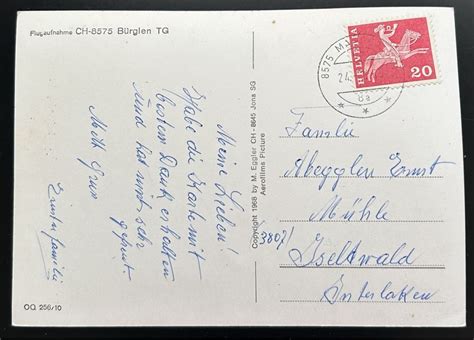 Flugaufnahme CH-8575 Bürglen TG
Meine Lieben!
Habe die Karte mit
bestem Dank erhalten
und hat mich sehr
gefreut.
Ernst u familie
OQ 256/10
Copyright 1968 by M. Eggler CH-8645 Jona SG
Aerofilms Picture
8575
HELVETIA
20
Familie
Abegglen Ernst
Mühle
3807/ Iseltwald
Interlaken